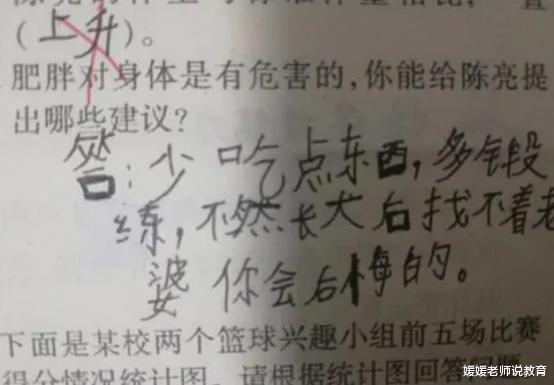 (上升)。
肥胖对身体是有危害的,你能给陈亮提
出哪些建议?
答:少吃点东西,多锻
练,不然长大后找不着老
婆你会后悔的。
下面是某校两个篮球兴趣小组前五场比赛
得分情况统计图。请根据统计图回答问题
媛媛老师说教育